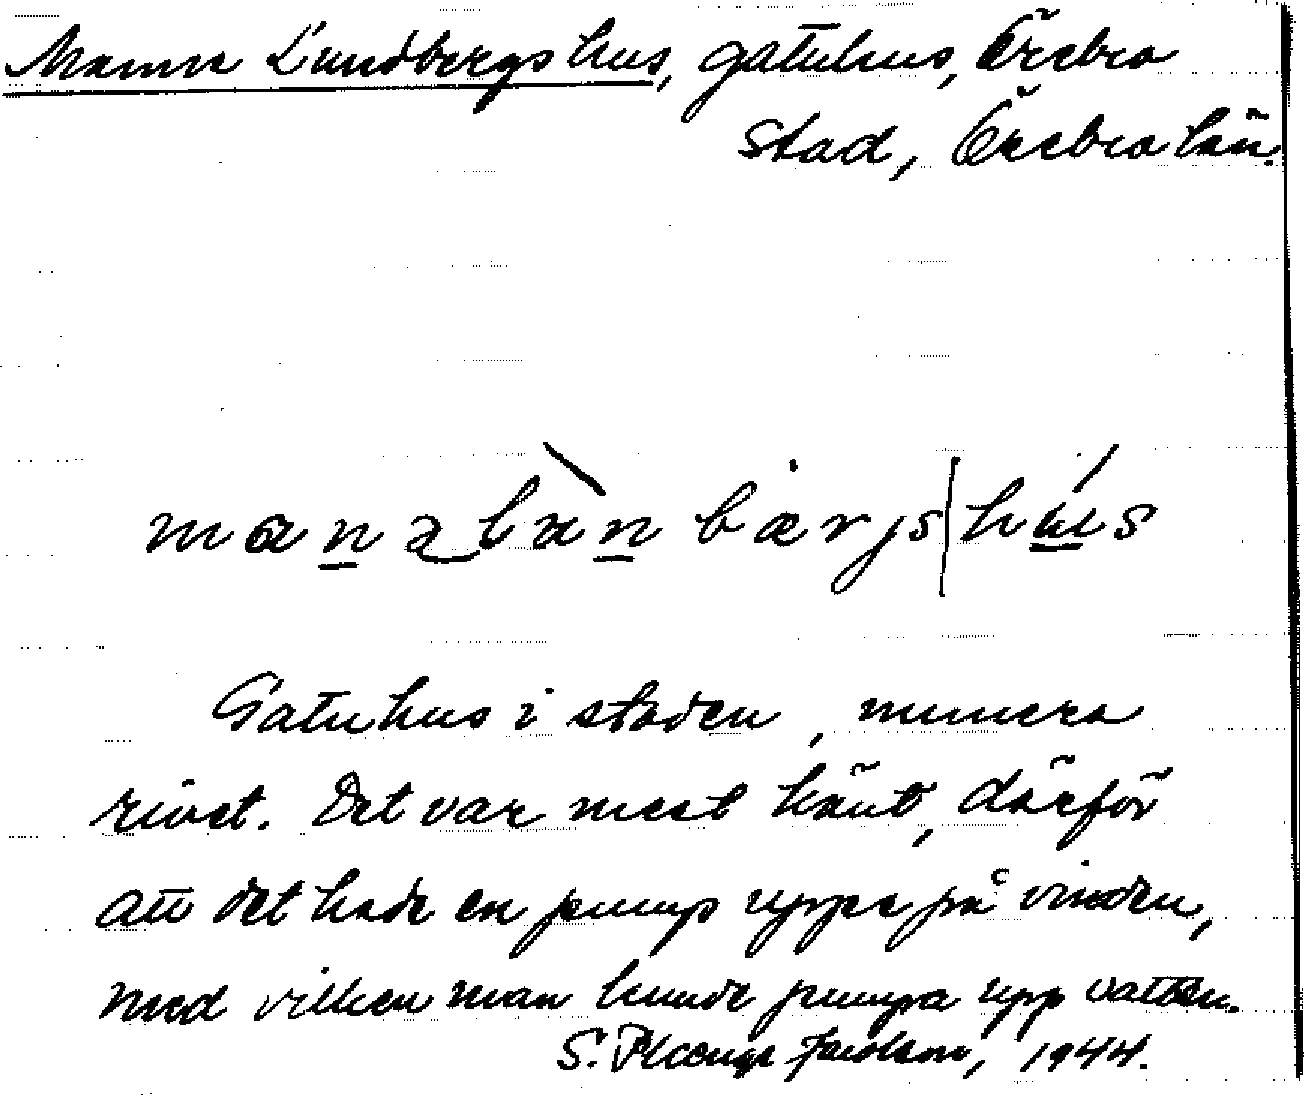 Manne Lundbergs hus, gatuhus, Örebro
stad, Örebro län.
manəlùnbærjs|hús
Gatuhus i staden, numera
rivet. Det var mest känt, därför
att det hade en pump uppe på vinden,
med vilken man kunde pumpa upp vatten.
S. 1944.